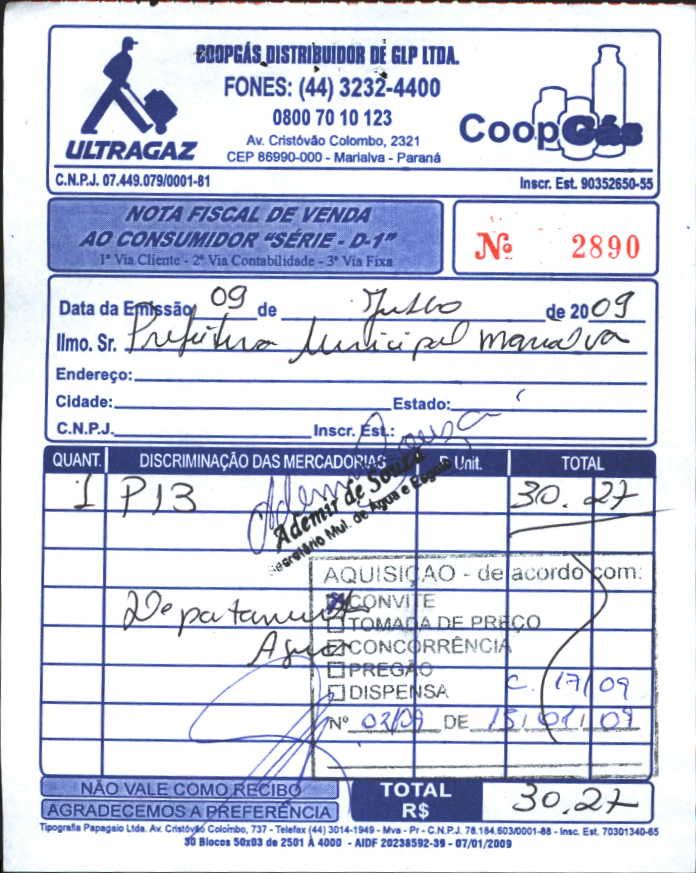 COOPGÁS DISTRIBUIDOR DE GLP LTDA.
FONES: (44) 3232-4400
0800 70 10 123
Av. Cristóvão Colombo, 2321
CEP 86990-000 - Marialva - Paraná
ULTRAGAZ
CoopGás
C.N.P.J. 07.449.079/0001-81 Inscr. Est. 90352650-55
NOTA FISCAL DE VENDA
AO CONSUMIDOR "SÉRIE - D-1"
1ª Via Cliente - 2ª Via Contabilidade - 3ª Via Fixa
Nº 2890
Data da Emissão 09 de Julho de 2009
Ilmo. Sr. Prefeitura Municipal Marialva
Endereço:
Cidade: Estado:
C.N.P.J. Inscr. Est.:
QUANT. DISCRIMINAÇÃO DAS MERCADORIAS P. Unit. TOTAL
1 P13 30.27
Ademir de Souza
Ademir de Souza
Secretário Mul. de Água e Esgoto
AQUISIÇÃO - de acordo com:
CONVITE
TOMADA DE PREÇO
CONCORRÊNCIA
PREGÃO
DISPENSA C. 17/09
Nº 02/09 DE 15/01/09
Departamento
Agua
NÃO VALE COMO RECIBO
AGRADECEMOS A PREFERÊNCIA
TOTAL R$ 30.27
Tipografia Papagaio Ltda. Av. Cristóvão Colombo, 737 - Telefax (44) 3014-1949 - Mva - Pr - C.N.P.J. 78.184.603/0001-88 - Insc. Est. 70301340-65
30 Blocos 50x03 de 2501 À 4000 - AIDF 20238592-39 - 07/01/2009